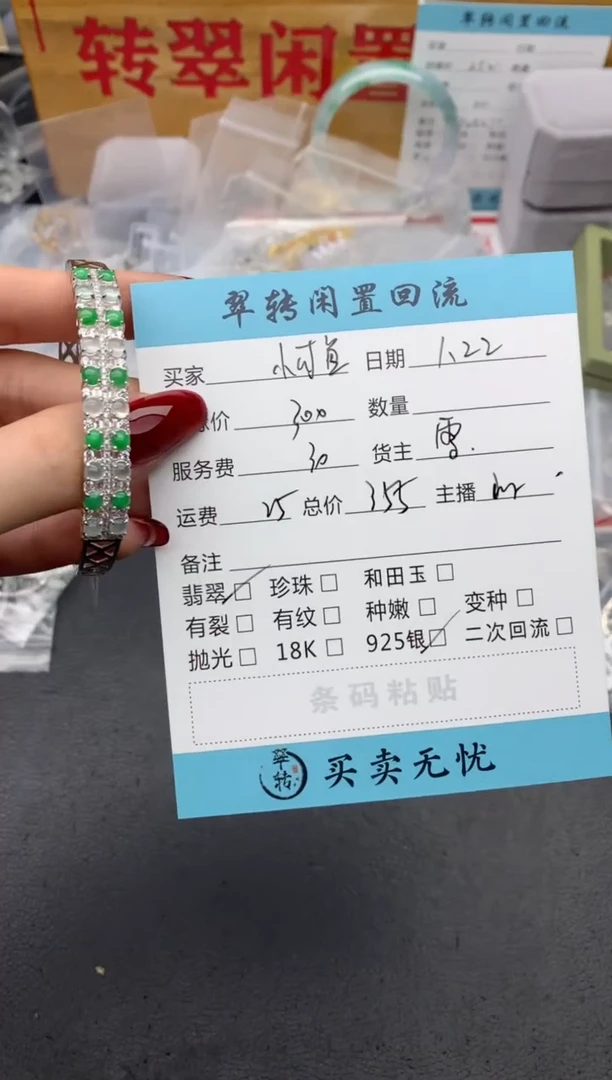 转翠闲置
翠转闲置回流
翠转闲置回流
买家 日期 1.22
价 300 数量
服务费 30 货主 雪.
运费 25 总价 355 主播
备注
翡翠 珍珠 和田玉
有裂 有纹 种嫩 变种
抛光 18K 925银 二次回流
条码粘贴
翠转 买卖无忧